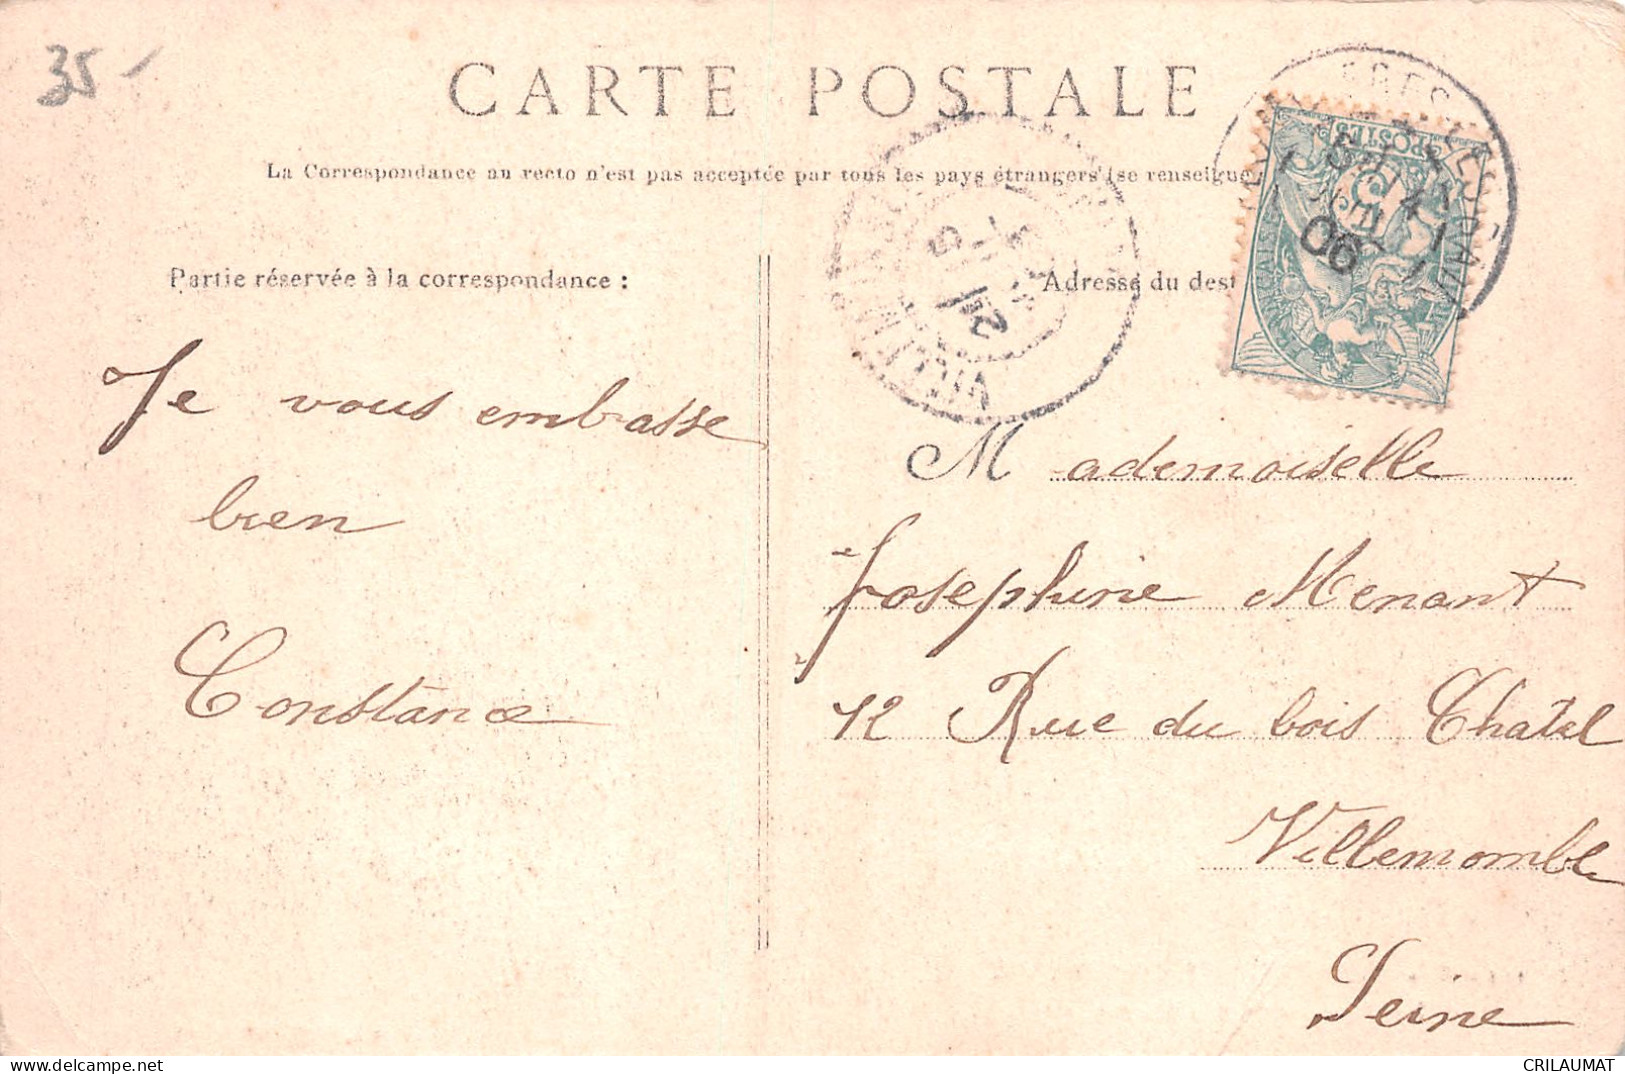 35
CARTE POSTALE
La Correspondance au recto n'est pas acceptée par tous les pays étrangers (se renseigne
Partie réservée à la correspondance :
Adresse du dest
POSTES
06
Je vous embrasse
bien
Constance
Mademoiselle
Josephine Menant
12 Rue du bois Chatel
Villemomble
Seine
CRILAUMAT